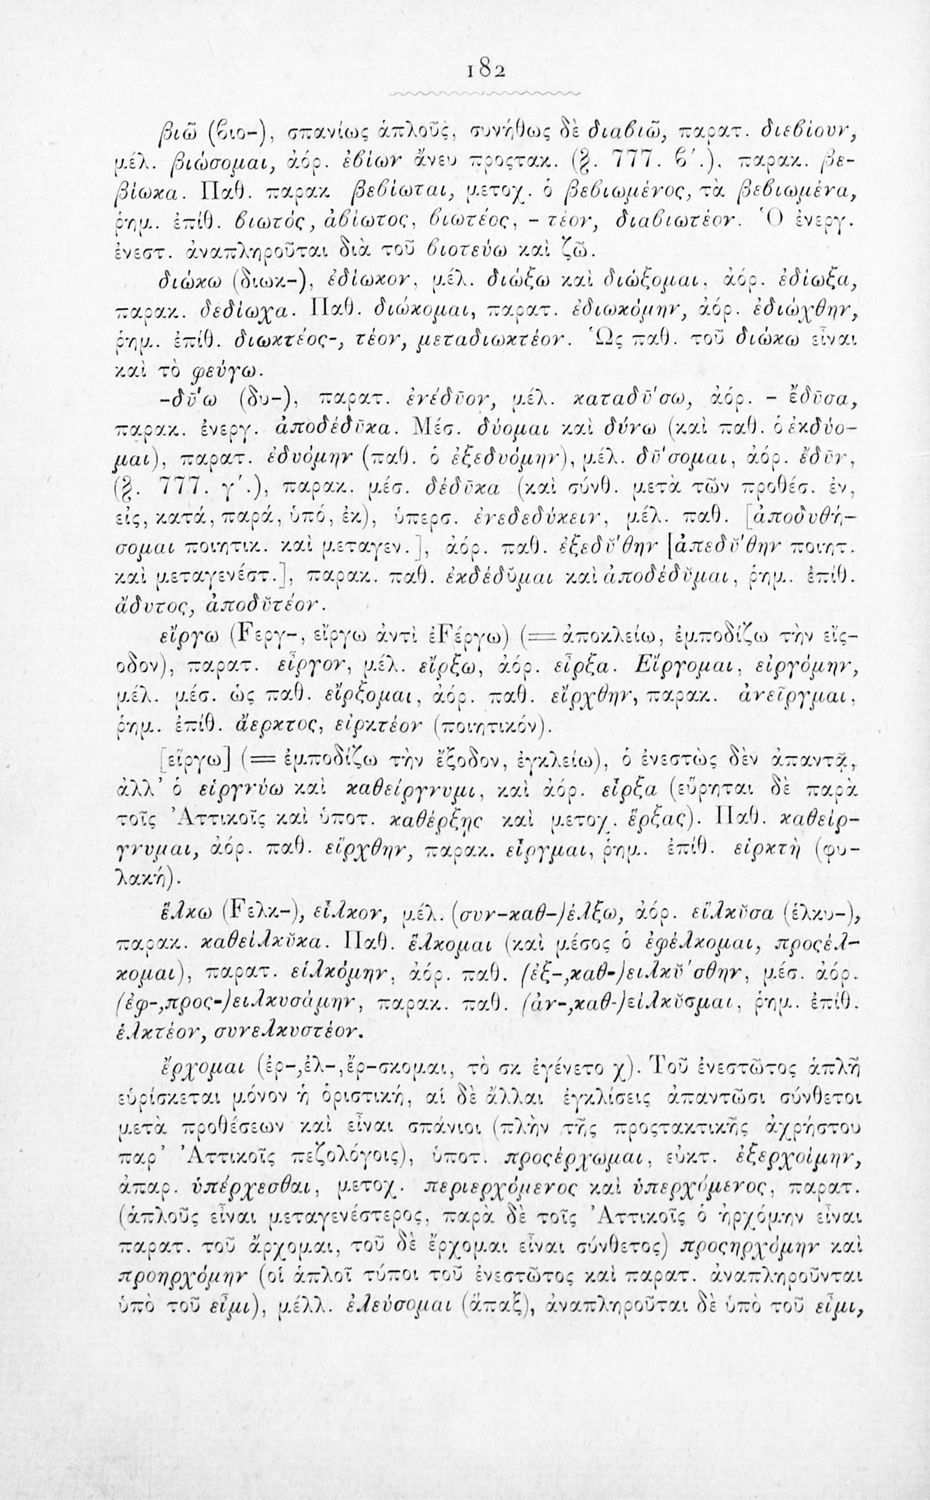 182
βιῶ (ϐιο-), σπανίως ἁπλοῦς, συνήθως δὲ διαβιῶ, παρατ. διεβίουν,
μέλ. βιώσομαι, ἀόρ. ἐβίων ἄνευ προςτακ. (§. 777. ϐ΄.), παρακ. βε-
βίωκα. Παθ. παρακ βεβίωται, μετοχ. ὁ βεβιωμένος, τὰ βεβιωμένα,
ῥημ. ἐπίθ. βιωτός, ἀβίωτος, βιωτέος, - τέον, διαβιωτέον. Ὁ ἐνεργ.
ἐνεστ. ἀναπληροῦται διὰ τοῦ βιοτεύω καὶ ζῶ.
διώκω (διωκ-), ἐδίωκον, μέλ. διώξω καὶ διώξομαι, ἀόρ. ἐδίωξα,
παρακ. δεδίωχα. Παθ. διώκομαι, παρατ. ἐδιωκόμην, ἀόρ. ἐδιώχθην,
ῥημ. ἐπίθ. διωκτέος-, τέον, μεταδιωκτέον. Ὡς παθ. τοῦ διώκω εἶναι
καὶ τὸ φεύγω.
-δῡ́ω (δυ-), παρατ. ἐνέδῡον, μέλ. καταδῡ́σω, ἀόρ. - ἔδῡσα,
παρακ. ἐνεργ. ἀποδέδῡκα. Μέσ. δύομαι καὶ δύνω (καὶ παθ. ὁ ἐκδύο-
μαι), παρατ. ἐδυόμην (παθ. ὁ ἐξεδυόμην), μέλ. δῡ́σομαι, ἀόρ. ἔδῡν,
(§. 777. γ΄.), παρακ. μέσ. δέδῡκα (καὶ σύνθ. μετὰ τῶν προθέσ. ἐν,
εἰς, κατά, παρά, ὑπό, ἐκ), ὑπερσ. ἐνεδεδύκειν, μέλ. παθ. [ἀποδυθή-
σομαι ποιητικ. καὶ μεταγεν.], ἀόρ. παθ. ἐξεδῠ́θην [ἀπεδῠ́θην ποιητ.
καὶ μεταγενέστ.], παρακ. παθ. ἐκδέδῠμαι καὶ ἀποδέδῠμαι, ῥημ. ἐπίθ.
ἄδυτος, ἀποδῠτέον.
εἴργω (Ϝεργ-, εἴργω ἀντὶ ἐϜέργω) (=ἀποκλείω, ἐμποδίζω τὴν εἴς-
οδον), παρατ. εἶργον, μέλ. εἴρξω, ἀόρ. εἶρξα. Εἴργομαι, εἰργόμην,
μέλ. μέσ. ὡς παθ. εἴρξομαι, ἀόρ. παθ. εἴρχθην, παρακ. ἀνεῖργμαι,
ῥημ. ἐπίθ. ἄερκτος, εἰρκτέον (ποιητικόν).
[εἵργω] (= ἐμποδίζω τὴν ἔξοδον, ἐγκλείω), ὁ ἐνεστὼς δὲν ἀπαντᾷ,
ἀλλ' ὁ εἱργνύω καὶ καθείργνυμι, καὶ ἀόρ. εἷρξα (εὕρηται δὲ παρὰ
τοῖς Ἀττικοῖς καὶ ὑποτ. καθέρξῃς καὶ μετοχ. ἕρξας). Παθ. καθείρ-
γνυμαι, ἀόρ. παθ. εἵρχθην, παρακ. εἷργμαι, ῥημ. ἐπίθ. εἱρκτὴ (φυ-
λακή).
ἕλκω (Ϝελκ-), εἷλκον, μέλ. (συν-καθ-)έλξω, ἀόρ. εἵλκῠσα (ἑλκυ-),
παρακ. καθείλκῠκα. Παθ. ἕλκομαι (καὶ μέσος ὁ ἐφέλκομαι, προςέλ-
κομαι), παρατ. εἱλκόμην, ἀόρ. παθ. (ἐξ-,καθ-)ειλκῠ́σθην, μέσ. ἀόρ.
(ἐφ-,προς-)ειλκυσάμην, παρακ. παθ. (ἀν-,καθ-)είλκῠσμαι, ῥημ. ἐπίθ.
ἑλκτέον, συνελκυστέον.
ἔρχομαι (ἐρ-,ἐλ-,ἔρ-σκομαι, τὸ σκ ἐγένετο χ). Τοῦ ἐνεστῶτος ἁπλῆ
εὑρίσκεται μόνον ἡ ὁριστική, αἱ δὲ ἄλλαι ἐγκλίσεις ἀπαντῶσι σύνθετοι
μετὰ προθέσεων καὶ εἶναι σπάνιοι (πλὴν τῆς προςτακτικῆς ἀχρήστου
παρ' Ἀττικοῖς πεζολόγοις), ὑποτ. προςέρχωμαι, εὐκτ. ἐξερχοίμην,
ἀπαρ. ὑπέρχεσθαι, μετοχ. περιερχόμενος καὶ ὑπερχόμενος, παρατ.
(ἁπλοῦς εἶναι μεταγενέστερος, παρὰ δὲ τοῖς Ἀττικοῖς ὁ ἠρχόμην εἶναι
παρατ. τοῦ ἄρχομαι, τοῦ δὲ ἔρχομαι εἶναι σύνθετος) προςηρχόμην καὶ
προηρχόμην (οἱ ἁπλοῖ τύποι τοῦ ἐνεστῶτος καὶ παρατ. ἀναπληροῦνται
ὑπὸ τοῦ εἶμι), μέλλ. ἐλεύσομαι (ἅπαξ), ἀναπληροῦται δὲ ὑπὸ τοῦ εἶμι,